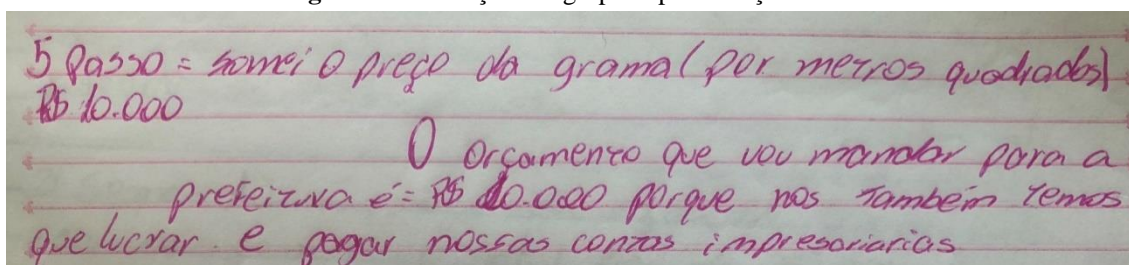 5 Passo = somei o preço da grama (por metros quadrados)
R$ 10.000
O orçamento que vou mandar para a
prefeitura é = R$ 10.000 porque nos também temos
que lucrar e pagar nossas contas impresariarias